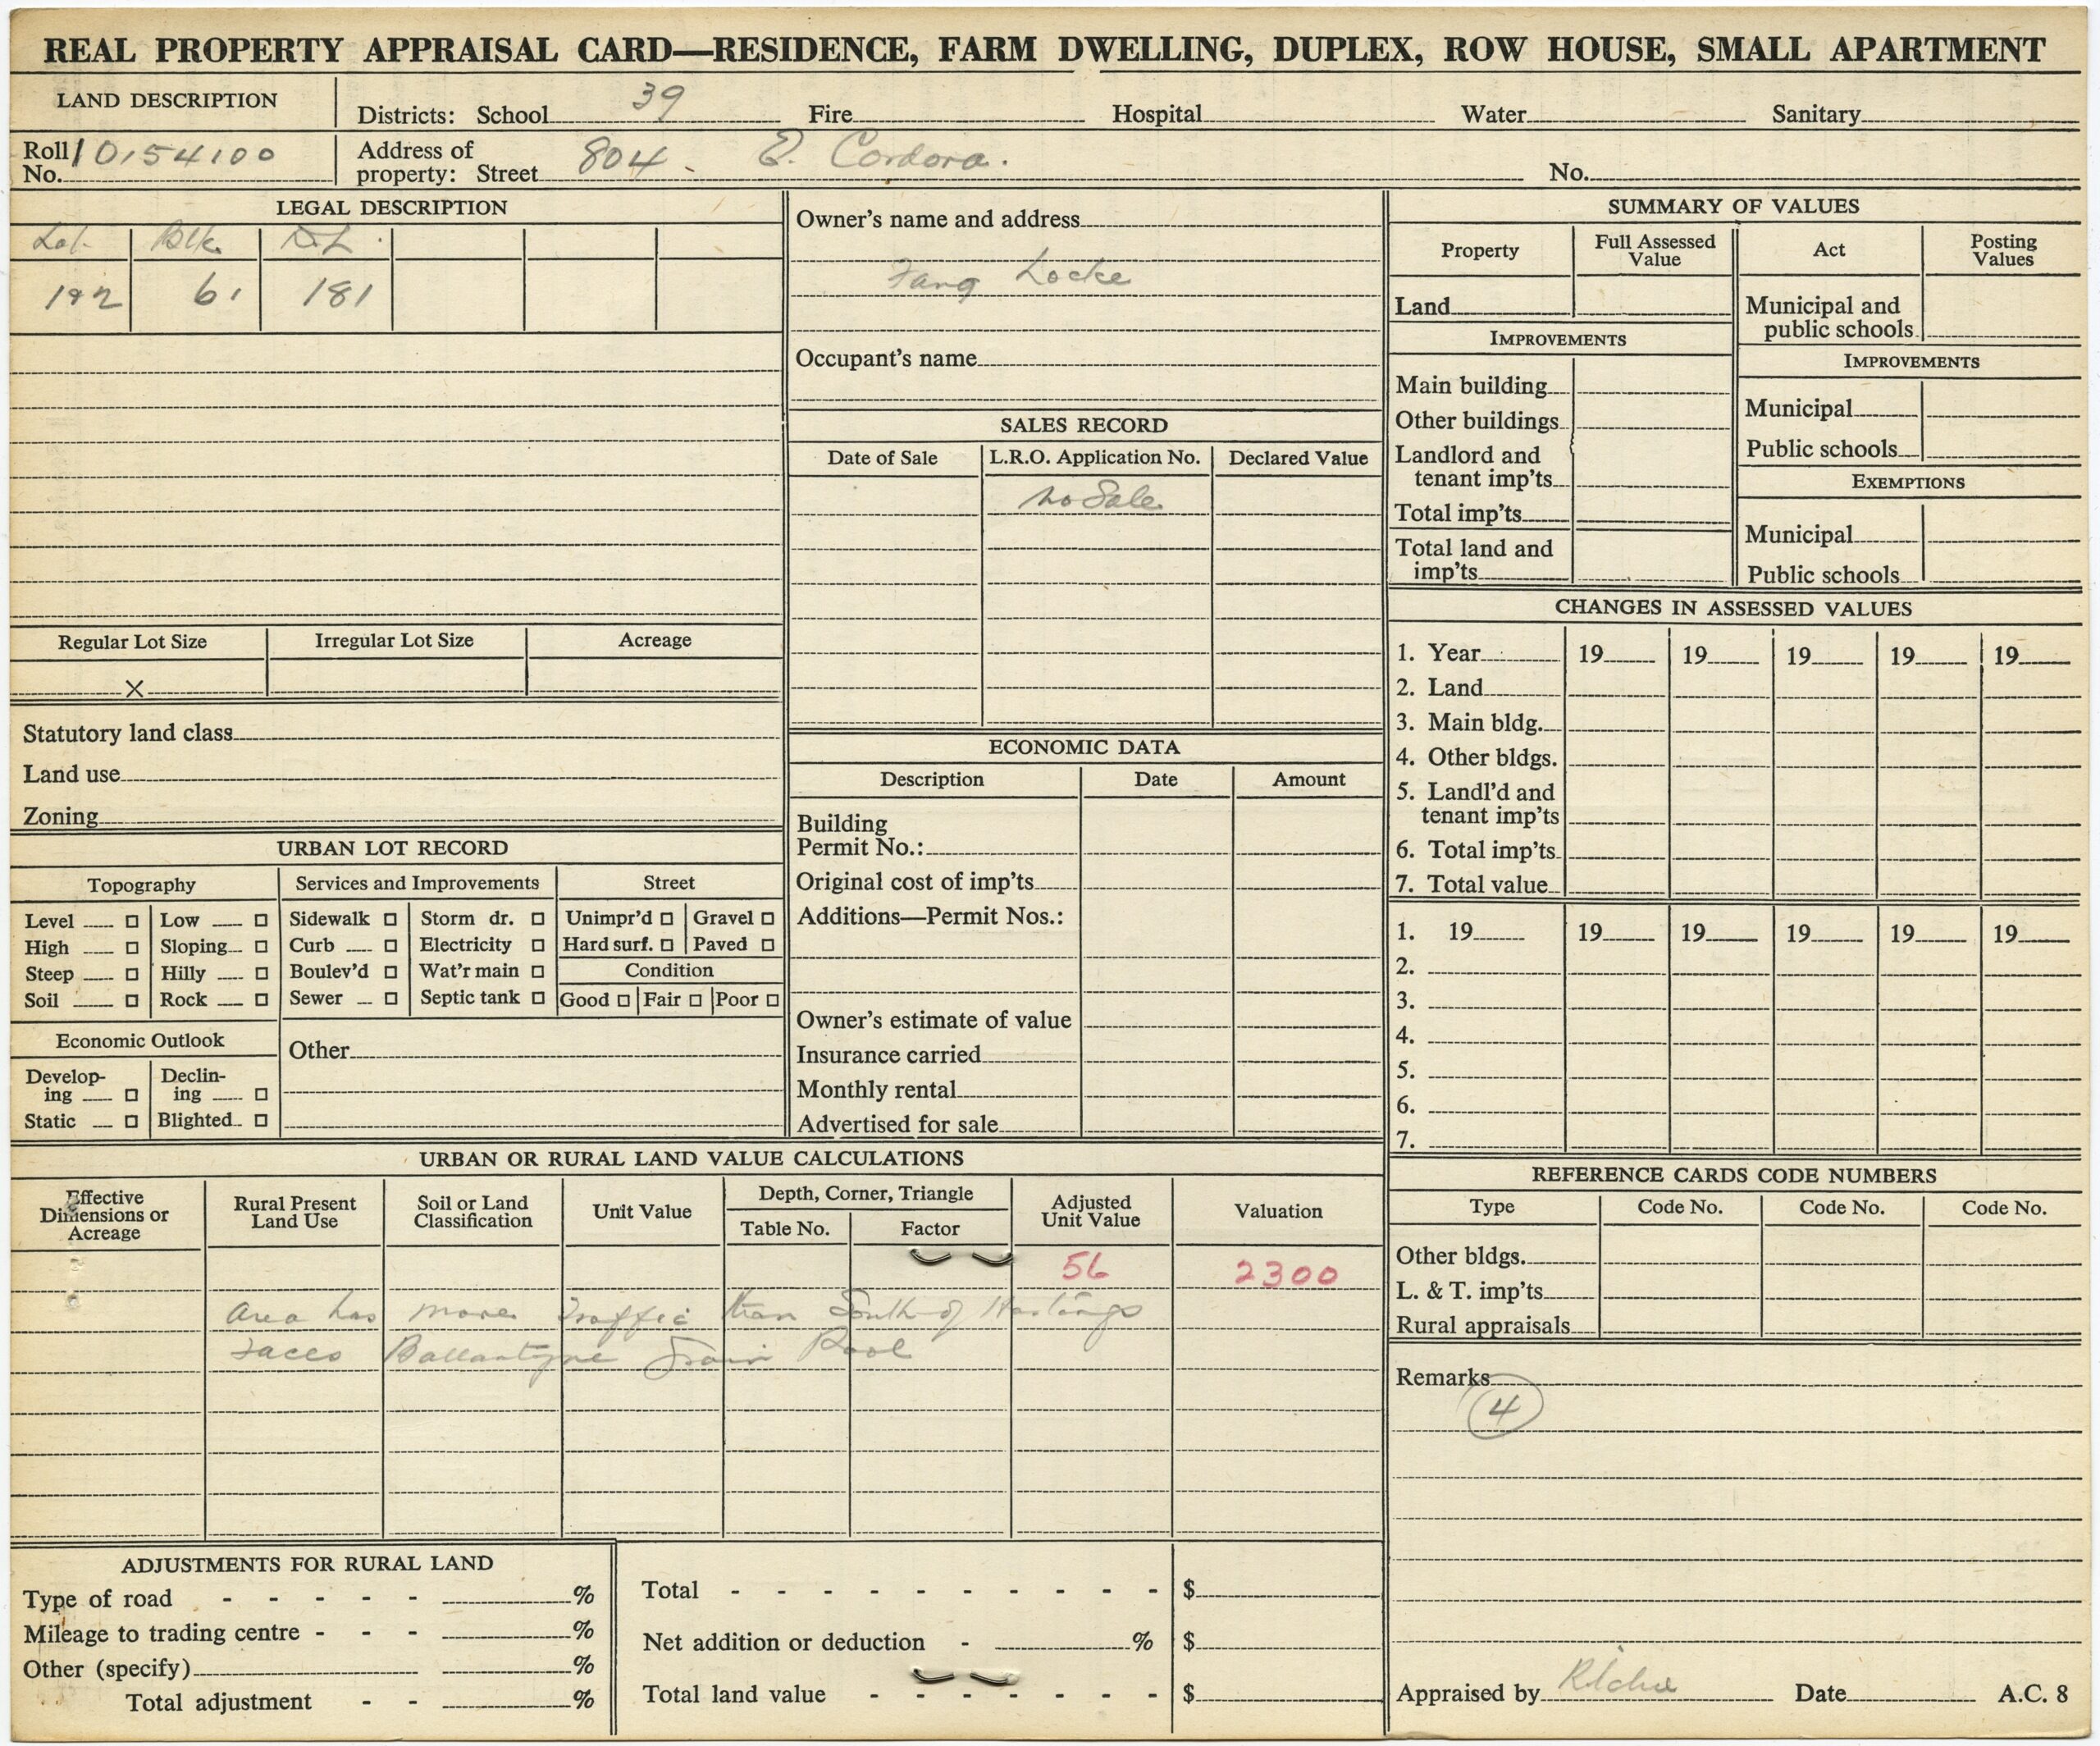 REAL PROPERTY APPRAISAL CARD—RESIDENCE, FARM DWELLING, DUPLEX, ROW HOUSE, SMALL APARTMENT
LAND DESCRIPTION
Districts: School 39 Fire Hospital Water Sanitary
Roll No. 10154100
Address of property: Street 804 - E. Cordova. No.
LEGAL DESCRIPTION
Lot. Blk. D.L.
61 181
Regular Lot Size Irregular Lot Size Acreage
X
Statutory land class
Land use
Zoning
URBAN LOT RECORD
Topography Services and Improvements Street
Level Low Sidewalk Storm dr. Unimpr'd Gravel
High Sloping Curb Electricity Hard surf. Paved
Steep Hilly Boulev'd Wat'r main Condition
Soil Rock Sewer Septic tank Good Fair Poor
Economic Outlook Other
Develop-ing Declin-ing
Static Blighted
Owner's name and address
Fang Locke
Occupant's name
SALES RECORD
Date of Sale L.R.O. Application No. Declared Value
No Sale
ECONOMIC DATA
Description Date Amount
Building
Permit No.:
Original cost of imp'ts
Additions—Permit Nos.:
Owner's estimate of value
Insurance carried
Monthly rental
Advertised for sale
SUMMARY OF VALUES
Property Full Assessed Value Act Posting Values
Land Municipal and public schools
IMPROVEMENTS IMPROVEMENTS
Main building Municipal
Other buildings Public schools
Landlord and tenant imp'ts EXEMPTIONS
Total imp'ts Municipal
Total land and imp'ts Public schools
CHANGES IN ASSESSED VALUES
1. Year 19 19 19 19 19
2. Land
3. Main bldg.
4. Other bldgs.
5. Landl'd and tenant imp'ts
6. Total imp'ts
7. Total value
1. 19 19 19 19 19 19
2.
3.
4.
5.
6.
7.
URBAN OR RURAL LAND VALUE CALCULATIONS
Effective Dimensions or Acreage Rural Present Land Use Soil or Land Classification Unit Value Depth, Corner, Triangle Adjusted Unit Value Valuation
Table No. Factor
56 2300
Area has more traffic than South of Hastings
Faces Ballantyne Pool
REFERENCE CARDS CODE NUMBERS
Type Code No. Code No. Code No.
Other bldgs.
L. & T. imp'ts
Rural appraisals
Remarks
4
ADJUSTMENTS FOR RURAL LAND
Type of road - - - - - %
Mileage to trading centre - - - %
Other (specify) %
Total adjustment - - %
Total - - - - - - - - - - $
Net addition or deduction - % $
Total land value - - - - - - - $
Appraised by Ritchie Date A.C. 8